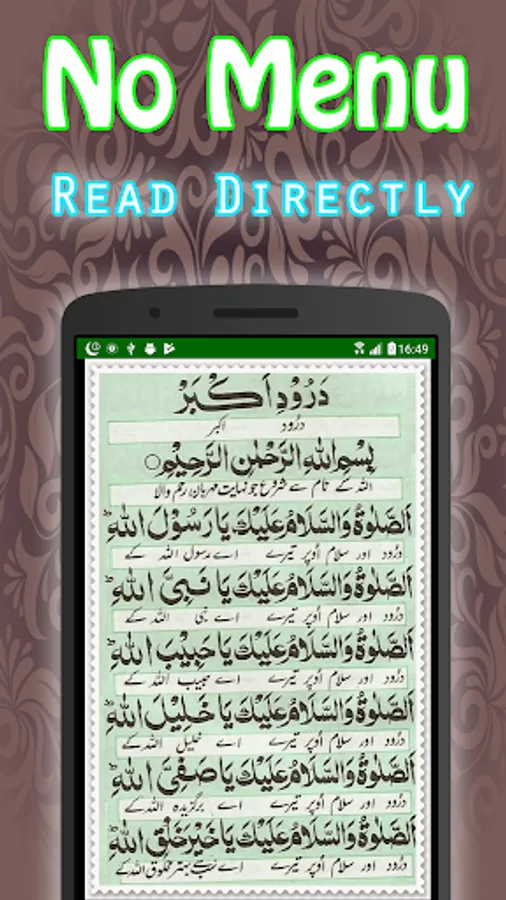 No Menu
READ DIRECTLY
16:49
دَرُوْدِ اَكْبَرْ
درُود اکبر
بِسْمِ اللهِ الرَّحْمٰنِ الرَّحِيْمِ○
اللہ کے نام سے شروع جو نہایت مہربان رحم والا
اَلصَّلٰوةُ وَالسَّلَامُ عَلَيْكَ يَا رَسُوْلَ اللهِ ط
درُود اور سلام اُوپر تیرے اے رسول اللہ کے
اَلصَّلٰوةُ وَالسَّلَامُ عَلَيْكَ يَا نَبِىَّ اللهِ ط
درُود اور سلام اُوپر تیرے اے نبی اللہ کے
اَلصَّلٰوةُ وَالسَّلَامُ عَلَيْكَ يَا حَبِيْبَ اللهِ ط
درُود اور سلام اُوپر تیرے اے حبیب اللہ کے
اَلصَّلٰوةُ وَالسَّلَامُ عَلَيْكَ يَا خَلِيْلَ اللهِ ط
درُود اور سلام اُوپر تیرے اے خلیل اللہ کے
اَلصَّلٰوةُ وَالسَّلَامُ عَلَيْكَ يَا صَفِىَّ اللهِ ط
درُود اور سلام اُوپر تیرے اے برگزیدہ اللہ کے
اَلصَّلٰوةُ وَالسَّلَامُ عَلَيْكَ يَا خَيْرَ خَلْقِ اللهِ ط
درُود اور سلام اُوپر تیرے اے سب سے بہتر مخلوق اللہ کے